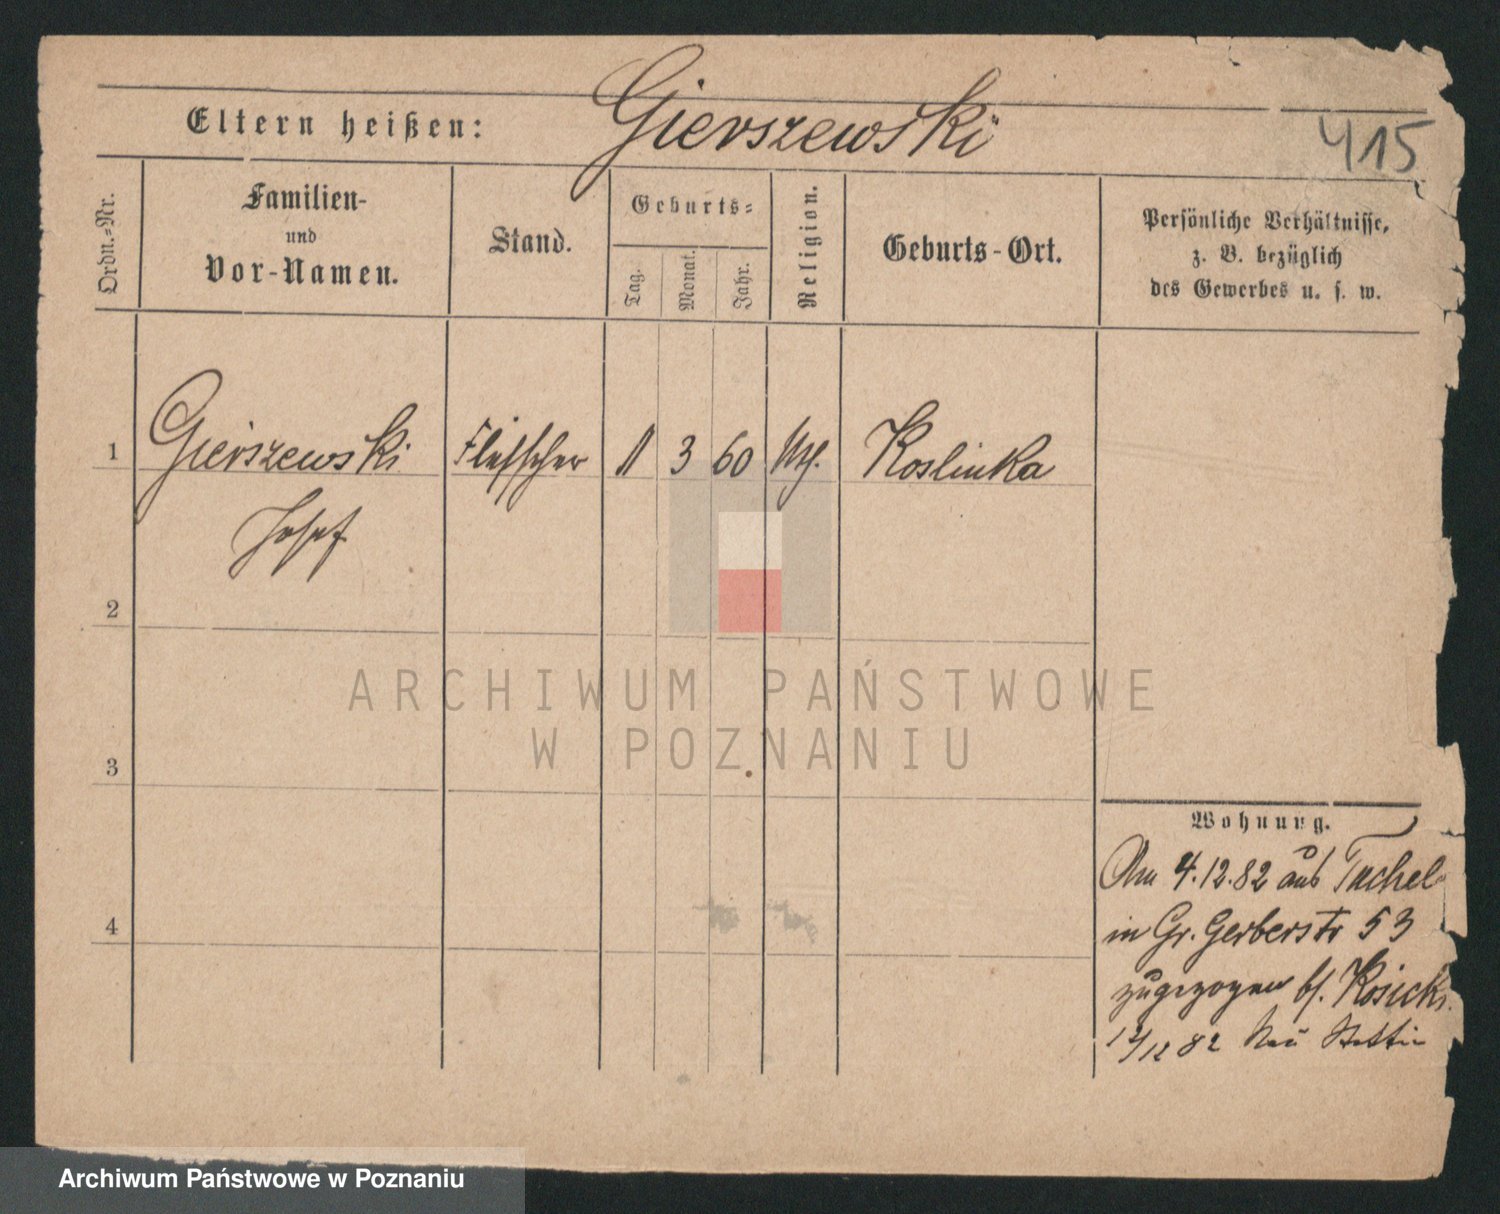 Eltern heißen: Gierszewski
415
Ordn.-Nr.
Familien-
und
Vor-Namen.
Stand.
Geburts-
Tag.
Monat.
Jahr.
Religion.
Geburts-Ort.
Persönliche Verhältnisse,
z. B. bezüglich
des Gewerbes u. s. w.
1 Gierszewski Fleischer 11 3 60 Koslinka
Josef
2
3
4
Wohnung.
Am 4.12.82 aus Tuchel
in Gr. Gerberstr 53
zugezogen bf. Kosicki
12/12 82 Neu Stettin
ARCHIWUM PAŃSTWOWE
W POZNANIU
Archiwum Państwowe w Poznaniu